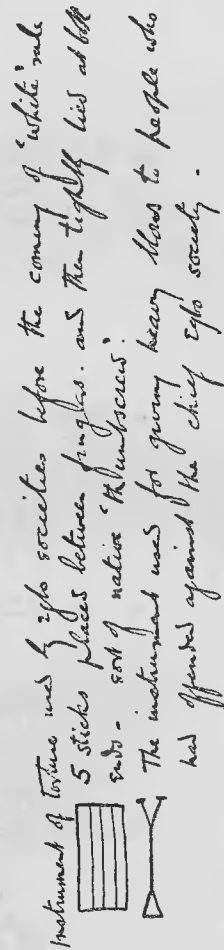 Instrument of torture used by Igbo societies before the coming of 'white' rule
5 sticks placed between fingers. and then tightly tied at both
ends - sort of native 'thumbscrew'.
The instrument used for giving heavy blows to people who
had offended against the chief Igbo society.